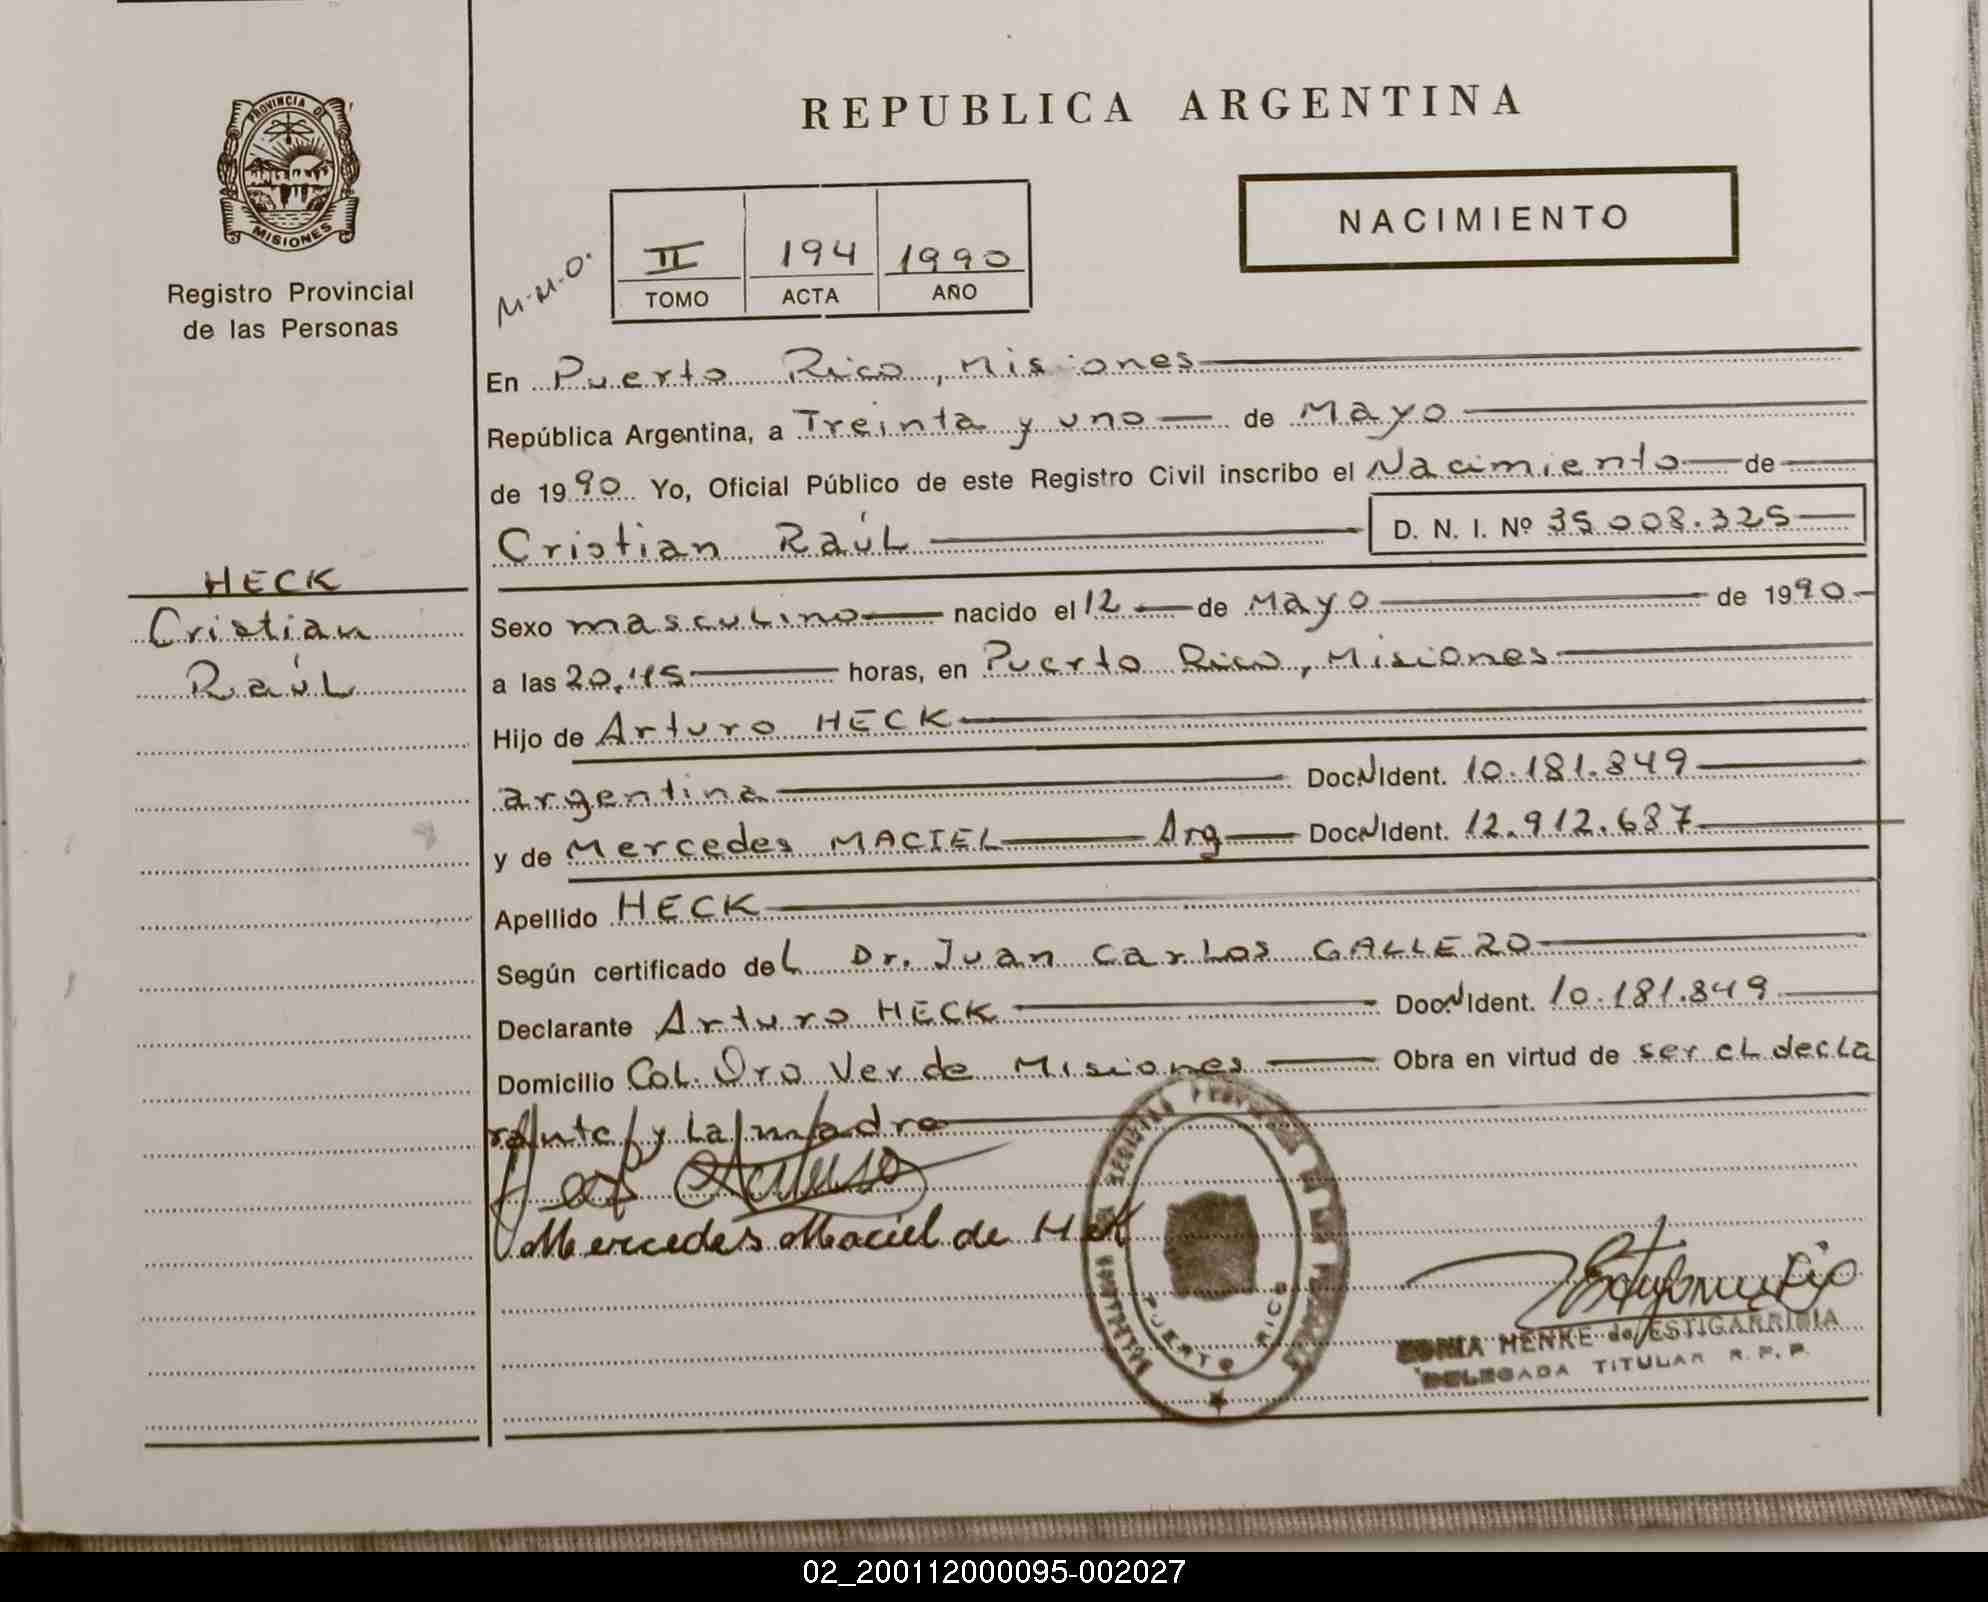 PROVINCIA DE
MISIONES
Registro Provincial
de las Personas
REPUBLICA ARGENTINA
NACIMIENTO
M.M.O.
II 194 1990
TOMO ACTA AÑO
En Puerto Rico, Misiones
República Argentina, a Treinta y uno de Mayo
de 1990 Yo, Oficial Público de este Registro Civil inscribo el Nacimiento de
Cristian Raúl D. N. I. Nº 35.008.325
HECK
Cristian
Raúl
Sexo masculino nacido el 12 de Mayo de 1990
a las 20,45 horas, en Puerto Rico, Misiones
Hijo de Arturo HECK
argentina Doc. N Ident. 10.181.849
y de Mercedes MACIEL Arg Doc. N Ident. 12.912.687
Apellido HECK
Según certificado del Dr. Juan Carlos GALLERO
Declarante Arturo HECK Doc. N Ident. 10.181.849
Domicilio Col. Oro Verde Misiones Obra en virtud de ser el decla
rante y la madre
Mercedes Maciel de Hek
PUERTO RICO
SONIA HENKE de ESTIGARRIBIA
DELEGADA TITULAR R. P. P.
02_200112000095-002027